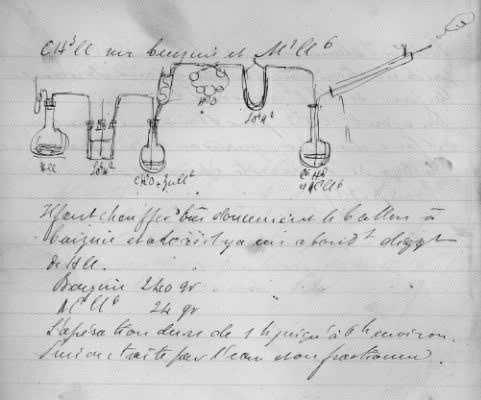 CH³Cl sur benzine et Al²Cl⁶
H²O
SO⁴H²
HCl
SO⁴H²
CH⁴O + ZnCl²
C⁶H⁶
Al²Cl⁶
Il faut chauffer très doucement le ballon à
benzine et alors il y a un abond^t dégag^t
de HCl.
Benzine 240 gr
Al²Cl⁶ 24 gr
L'opération dure de 1h jusqu'à 6h environ.
Puis on traite par l'eau et on fractionne.